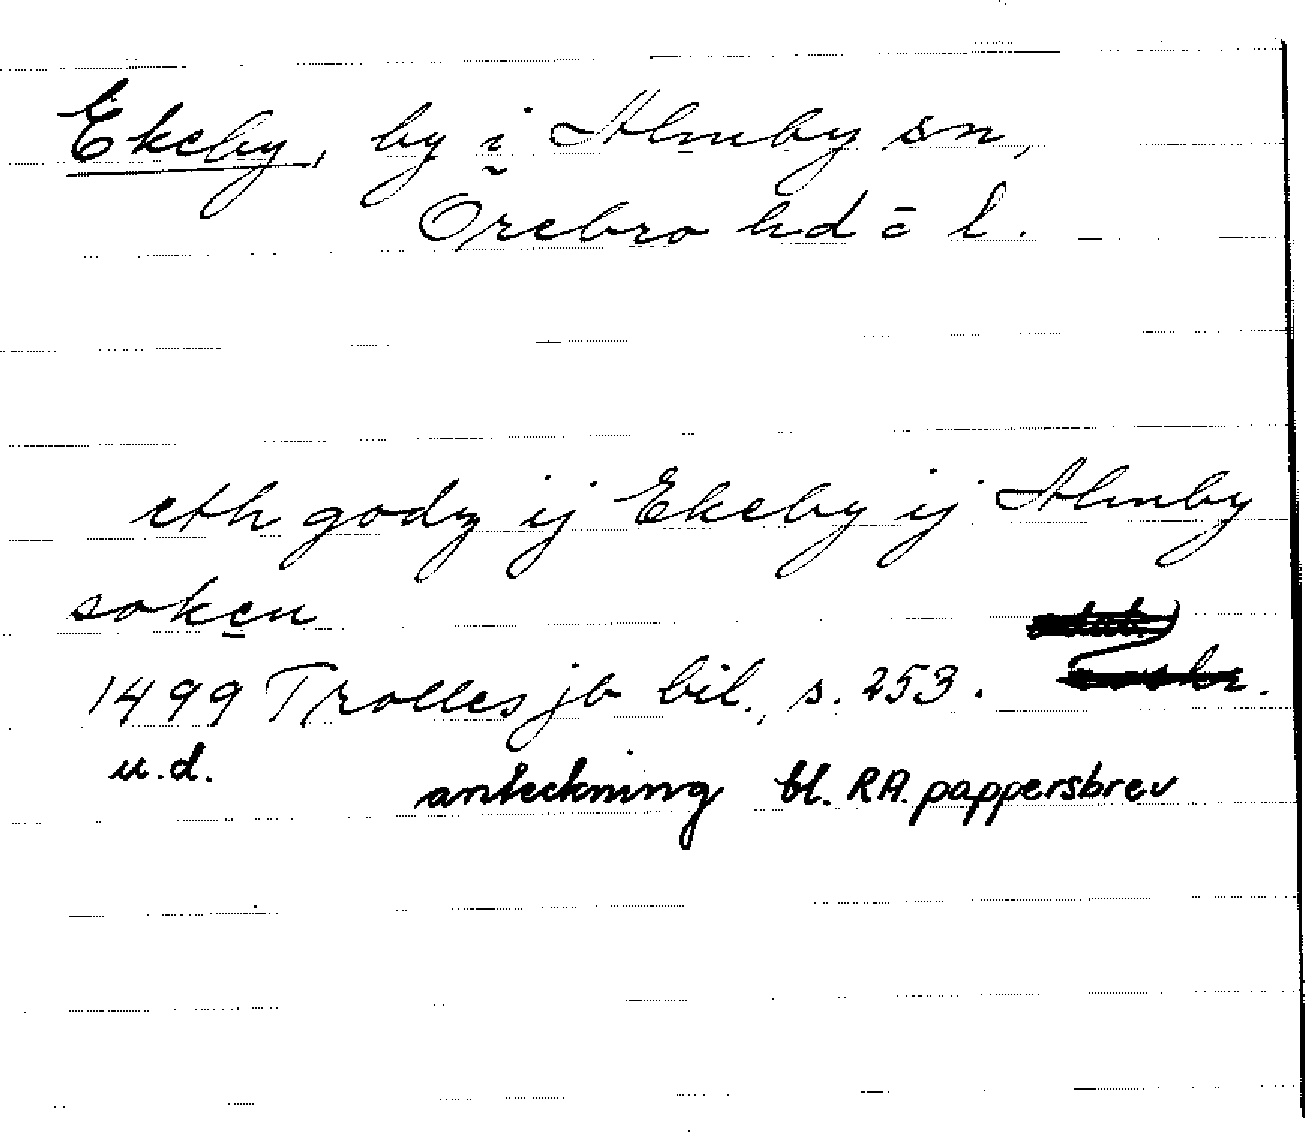 Ekeby, by i Almby sn,
Örebro hd o l.
eth godz ij Ekeby ij Almby
soken
1499 Trolles jb bil., s. 253.
u.d. anteckning bl. RA. pappersbrev